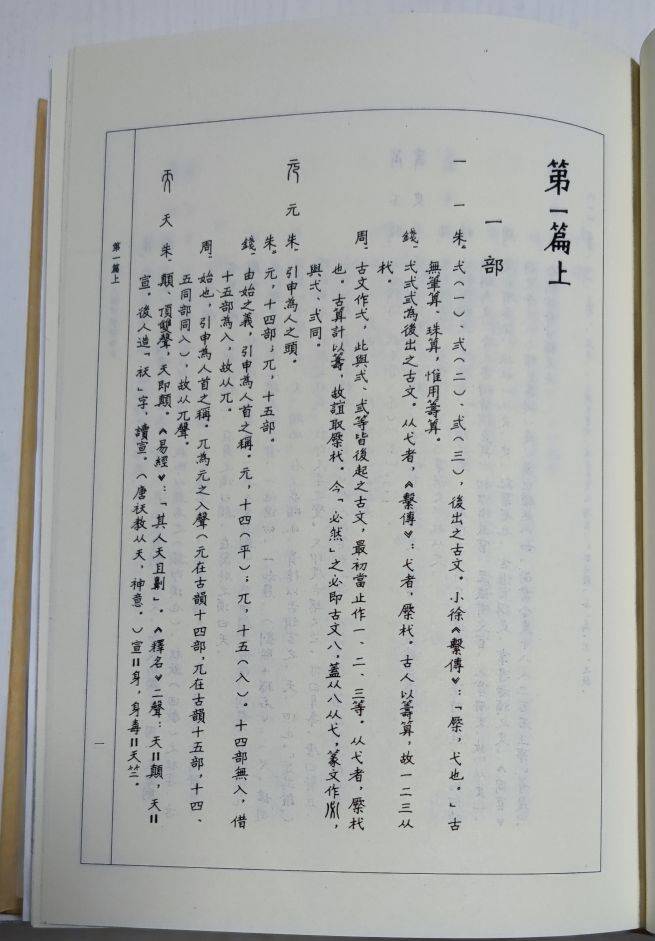 第一篇上
一部
一 一 朱、弌（一）、弍（二）、弎（三），後出之古文。小徐《繫傳》：「橜，弋也。」古
無筆算、珠算，惟用籌算。
錢、弌弍弎為後出之古文。从弋者，《繫傳》：弋者，橜杙。古人以籌算，故一二三从
杙。
周、古文作弌，此與弍、弎等皆後起之古文，最初當止作一、二、三等。从弋者，橜杙
也。古算計以籌，故誼取橜杙。今「必然」之必即古文八，蓋从八从弋，篆文作，
與弌、弍同。
元 元 朱、引申為人之頭。
朱。元，十四部；兀，十五部。
錢、由始之義，引申為人首之稱。元，十四（平）；兀，十五（入）。十四部無入，借
十五部為入，故从兀。
周、始也，引申為人首之稱。兀為元之入聲（元在古韻十四部，兀在古韻十五部，十四、
五同部同入），故从兀聲。
天 天 朱、顛、頂雙聲，天即顛。《易經》：「其人天且劓」。《釋名》二聲：天＝顛，天＝
宣，後人造「祆」字，讀宣。（唐祆教从天，神意。）宣＝身，身毒＝天竺。
第一篇上
一